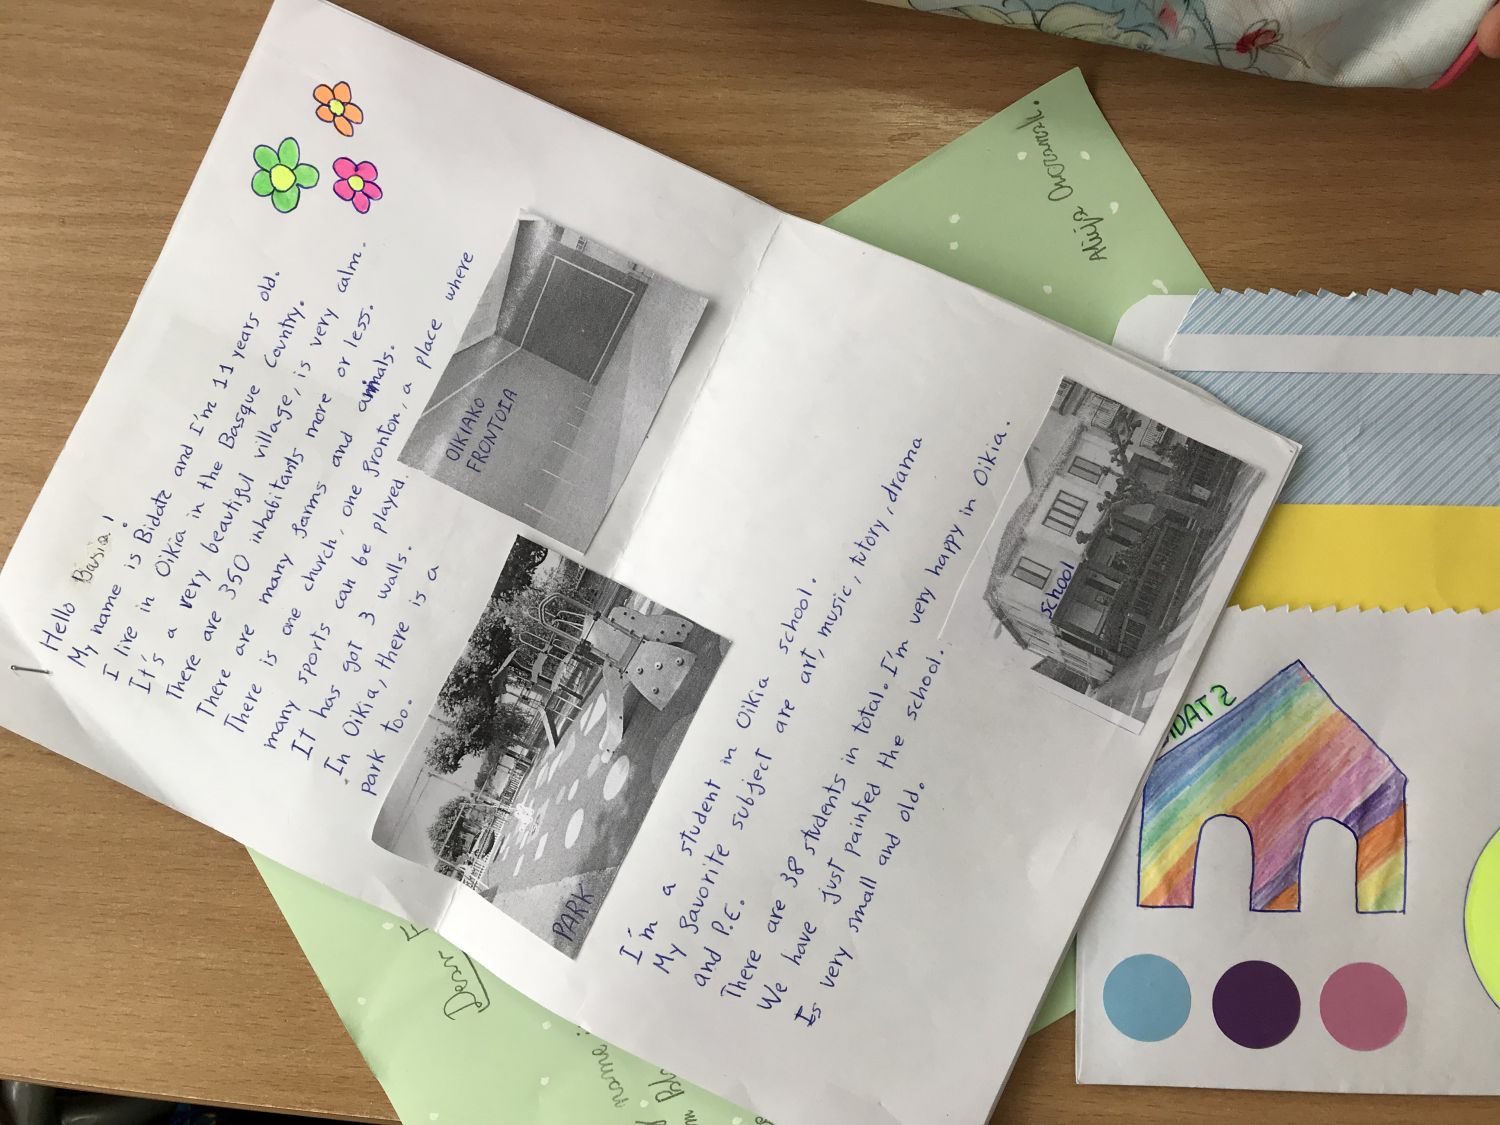 Hello Basia!
My name is Bidatz and I'm 11 years old.
I live in Oikia in the Basque Country.
It's a very beautiful village, is very calm.
There are 350 inhabitants more or less.
There are many farms and animals.
There is one church, one fronton, a place where
many sports can be played.
It has got 3 walls.
In Oikia, there is a
park too.
OIKIAKO
FRONTOIA
PARK
I'm a student in Oikia school.
My favorite subject are art, music, tutory, drama
and P.E.
There are 38 students in total. I'm very happy in Oikia.
We have just painted the school.
Is very small and old.
school
Dear
name
Alicja
IDATZ